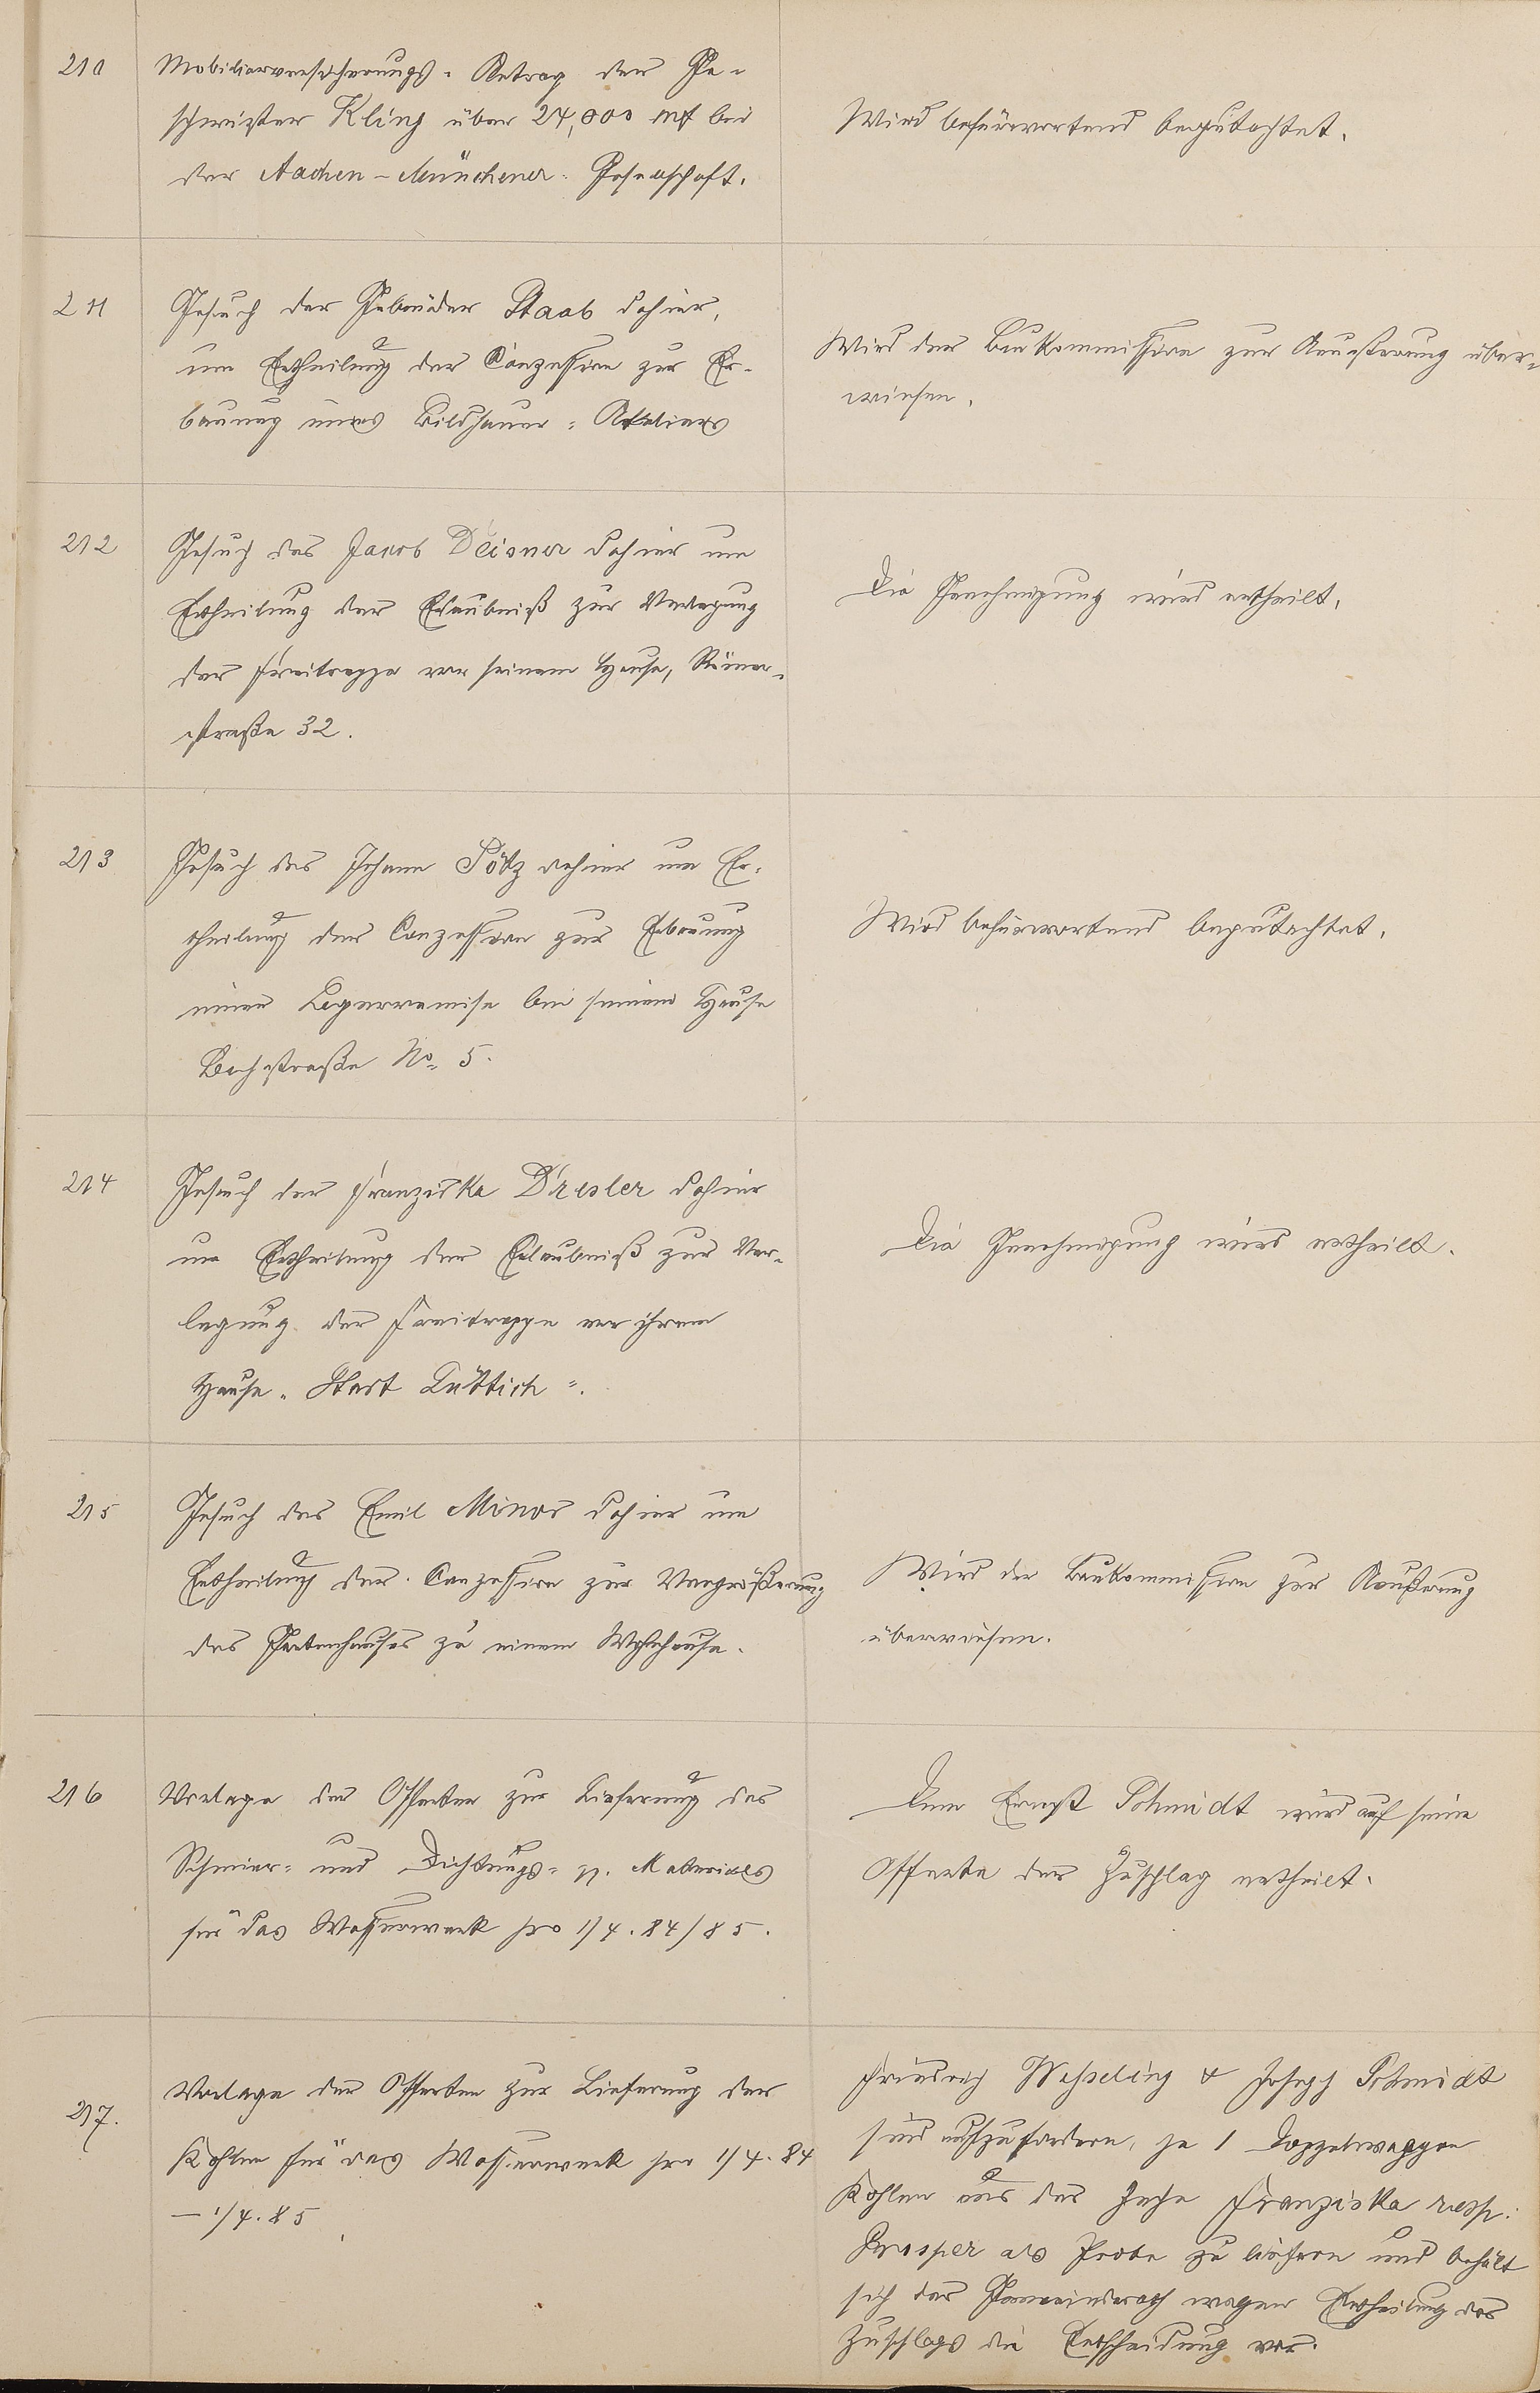 210
Mobiliarversicherungs-Antrag der Ge-
schwister Kling über 24,000 M bei
der Aachen-Münchener-Gesellschaft.
Wird befürwortend begutachtet.
211
Gesuch der Gebrüder Staab dahier,
um Ertheilung der Conzession zur Er-
bauung eines Bildhauer-Ateliers
Wird der Baukommission zur Aeusserung über-
wiesen.
212
Gesuch des Jacob Deisner dahier um
Ertheilung der Erlaubniß zur Verlegung
der Freitreppe vor seinem Hause, Römer-
straße 32.
Die Genehmigung wird ertheilt.
213
Gesuch des Johann Götz dahier um Er-
theilung der Conzession zur Erbauung
einer Lagerremise bei seinem Hause
Bachstraße No 5.
Wird befürwortend begutachtet.
214
Gesuch der Franziska Dresler dahier
um Ertheilung der Erlaubniß zur Ver-
legung der Freitreppe vor ihrem
Hause „Stadt Lüttich".
Die Genehmigung wird ertheilt.
215
Gesuch des Emil Minor dahier um
Ertheilung der Conzession zur Vergrößerung
des Gartenhauses zu einem Wohnhause.
Wird der Baukommission zur Aeußerung
überwiesen.
216
Vorlage der Offerten zur Lieferung des
Schmier- und Dichtungs- pp. Materials
für das Wasserwerk pro 1/4. 84/85.
Dem Ernst Schmidt wird auf seine
Offerte der Zuschlag ertheilt.
217.
Vorlage der Offerten zur Lieferung der
Kohlen für das Wasserwerk pro 1/4. 84
— 1/4. 85
Friedrich Wesseling & Joseph Schmidt
sind aufzufordern, je 1 Doppelwaggon
Kohlen aus der Zeche Franziska resp.
Prosper als Probe zu liefern und behält
sich der Gemeinderath wegen Ertheilung des
Zuschlags die Entscheidung vor.